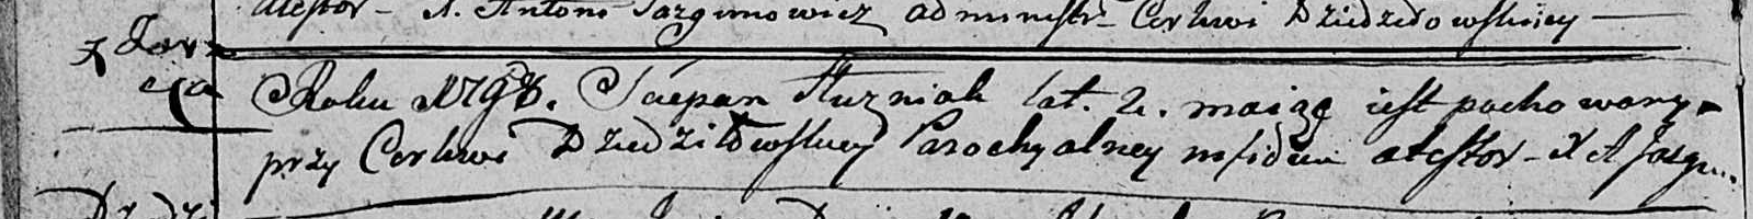 atestor - X. Antoni Jazgunowicz administr. Cerkwi Dziedziłowskiey
z
Roku 1798. Sciepan Kuzniak lat. 2. maiąc iest pochowany
przy Cerkwi Dziedziłowskiey Parochyalney in fidem atestor - X A Jazgu...